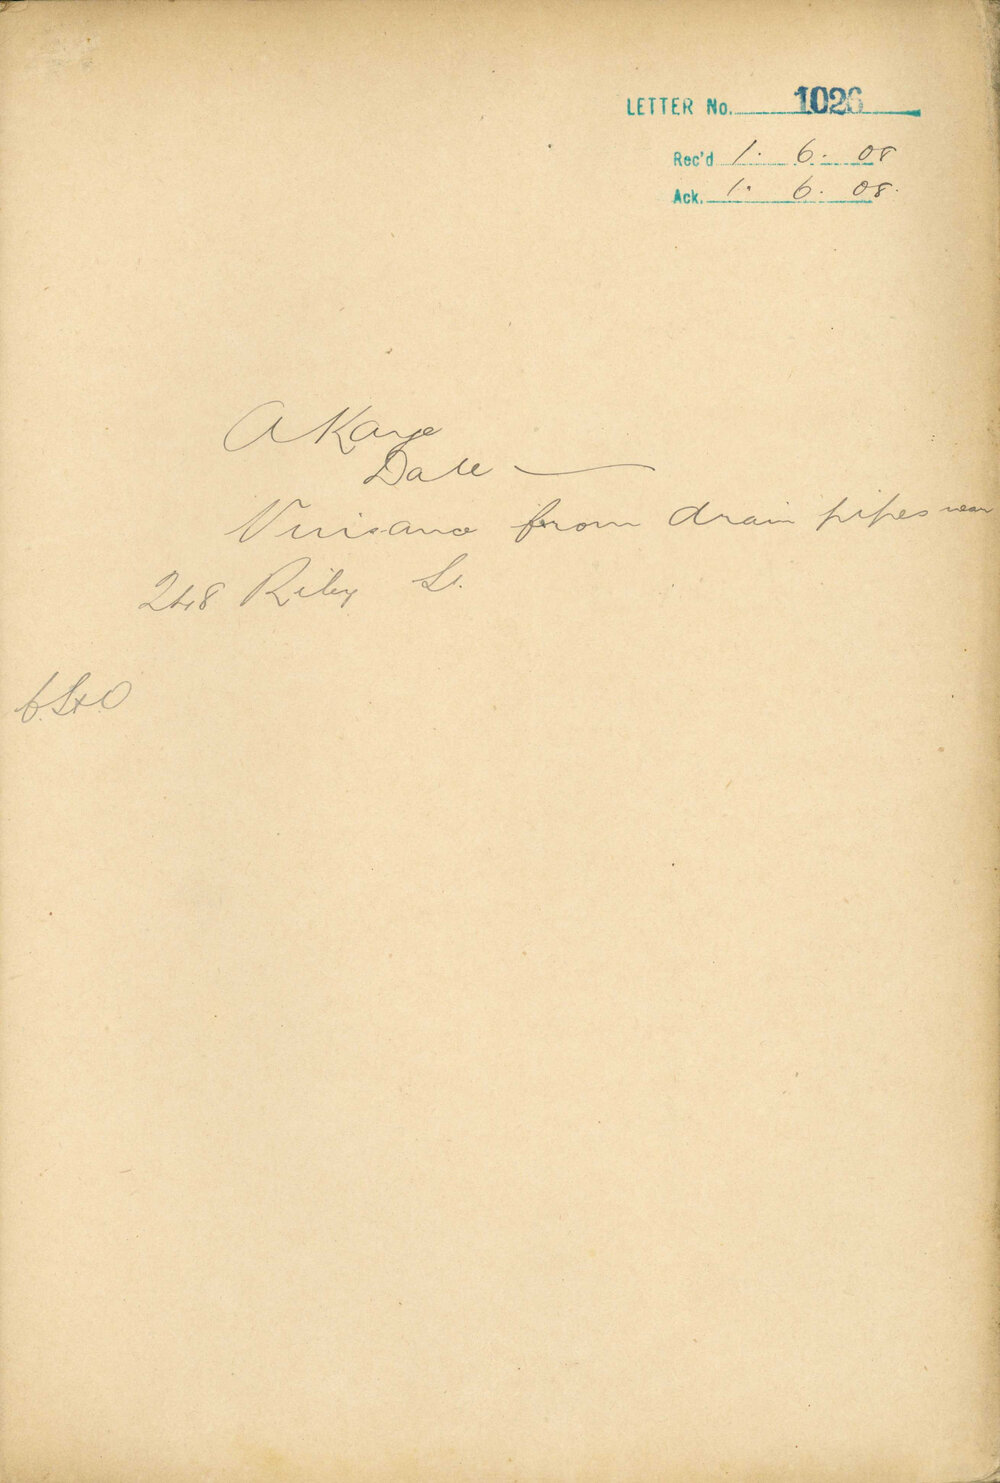 LETTER No. 1026
Rec'd 1. 6. 08
Ack. 1. 6. 08.
A Kaye
Date —
Nuisance from drain pipes near
248 Riley St.